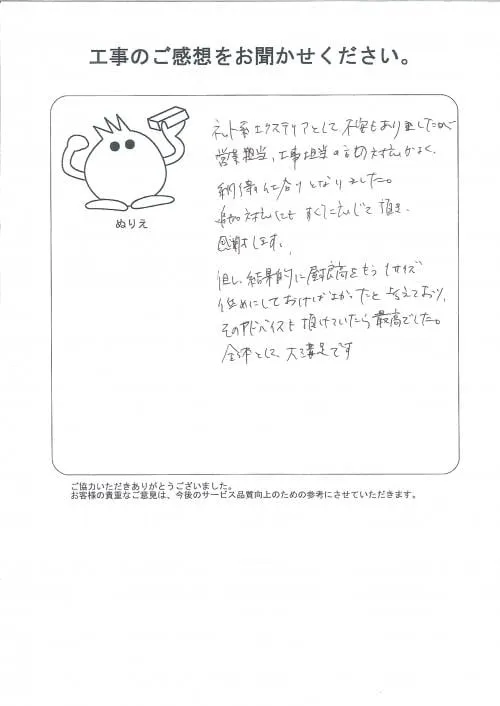 工事のご感想をお聞かせください。
ぬりえ
ネット系エクステリアとして不安もありましたが
営業担当、工事担当の方の対応がよく、
納得仕上りとなりました。
追加対応にもすぐに応じて頂き、
感謝します。
但し、結果的に高をもう1サイズ
低めにしておけばよかったと考えており、
そのアドバイスも頂けていたら最高でした。
全体として大満足です
ご協力いただきありがとうございました。
お客様の貴重なご意見は、今後のサービス品質向上のための参考にさせていただきます。